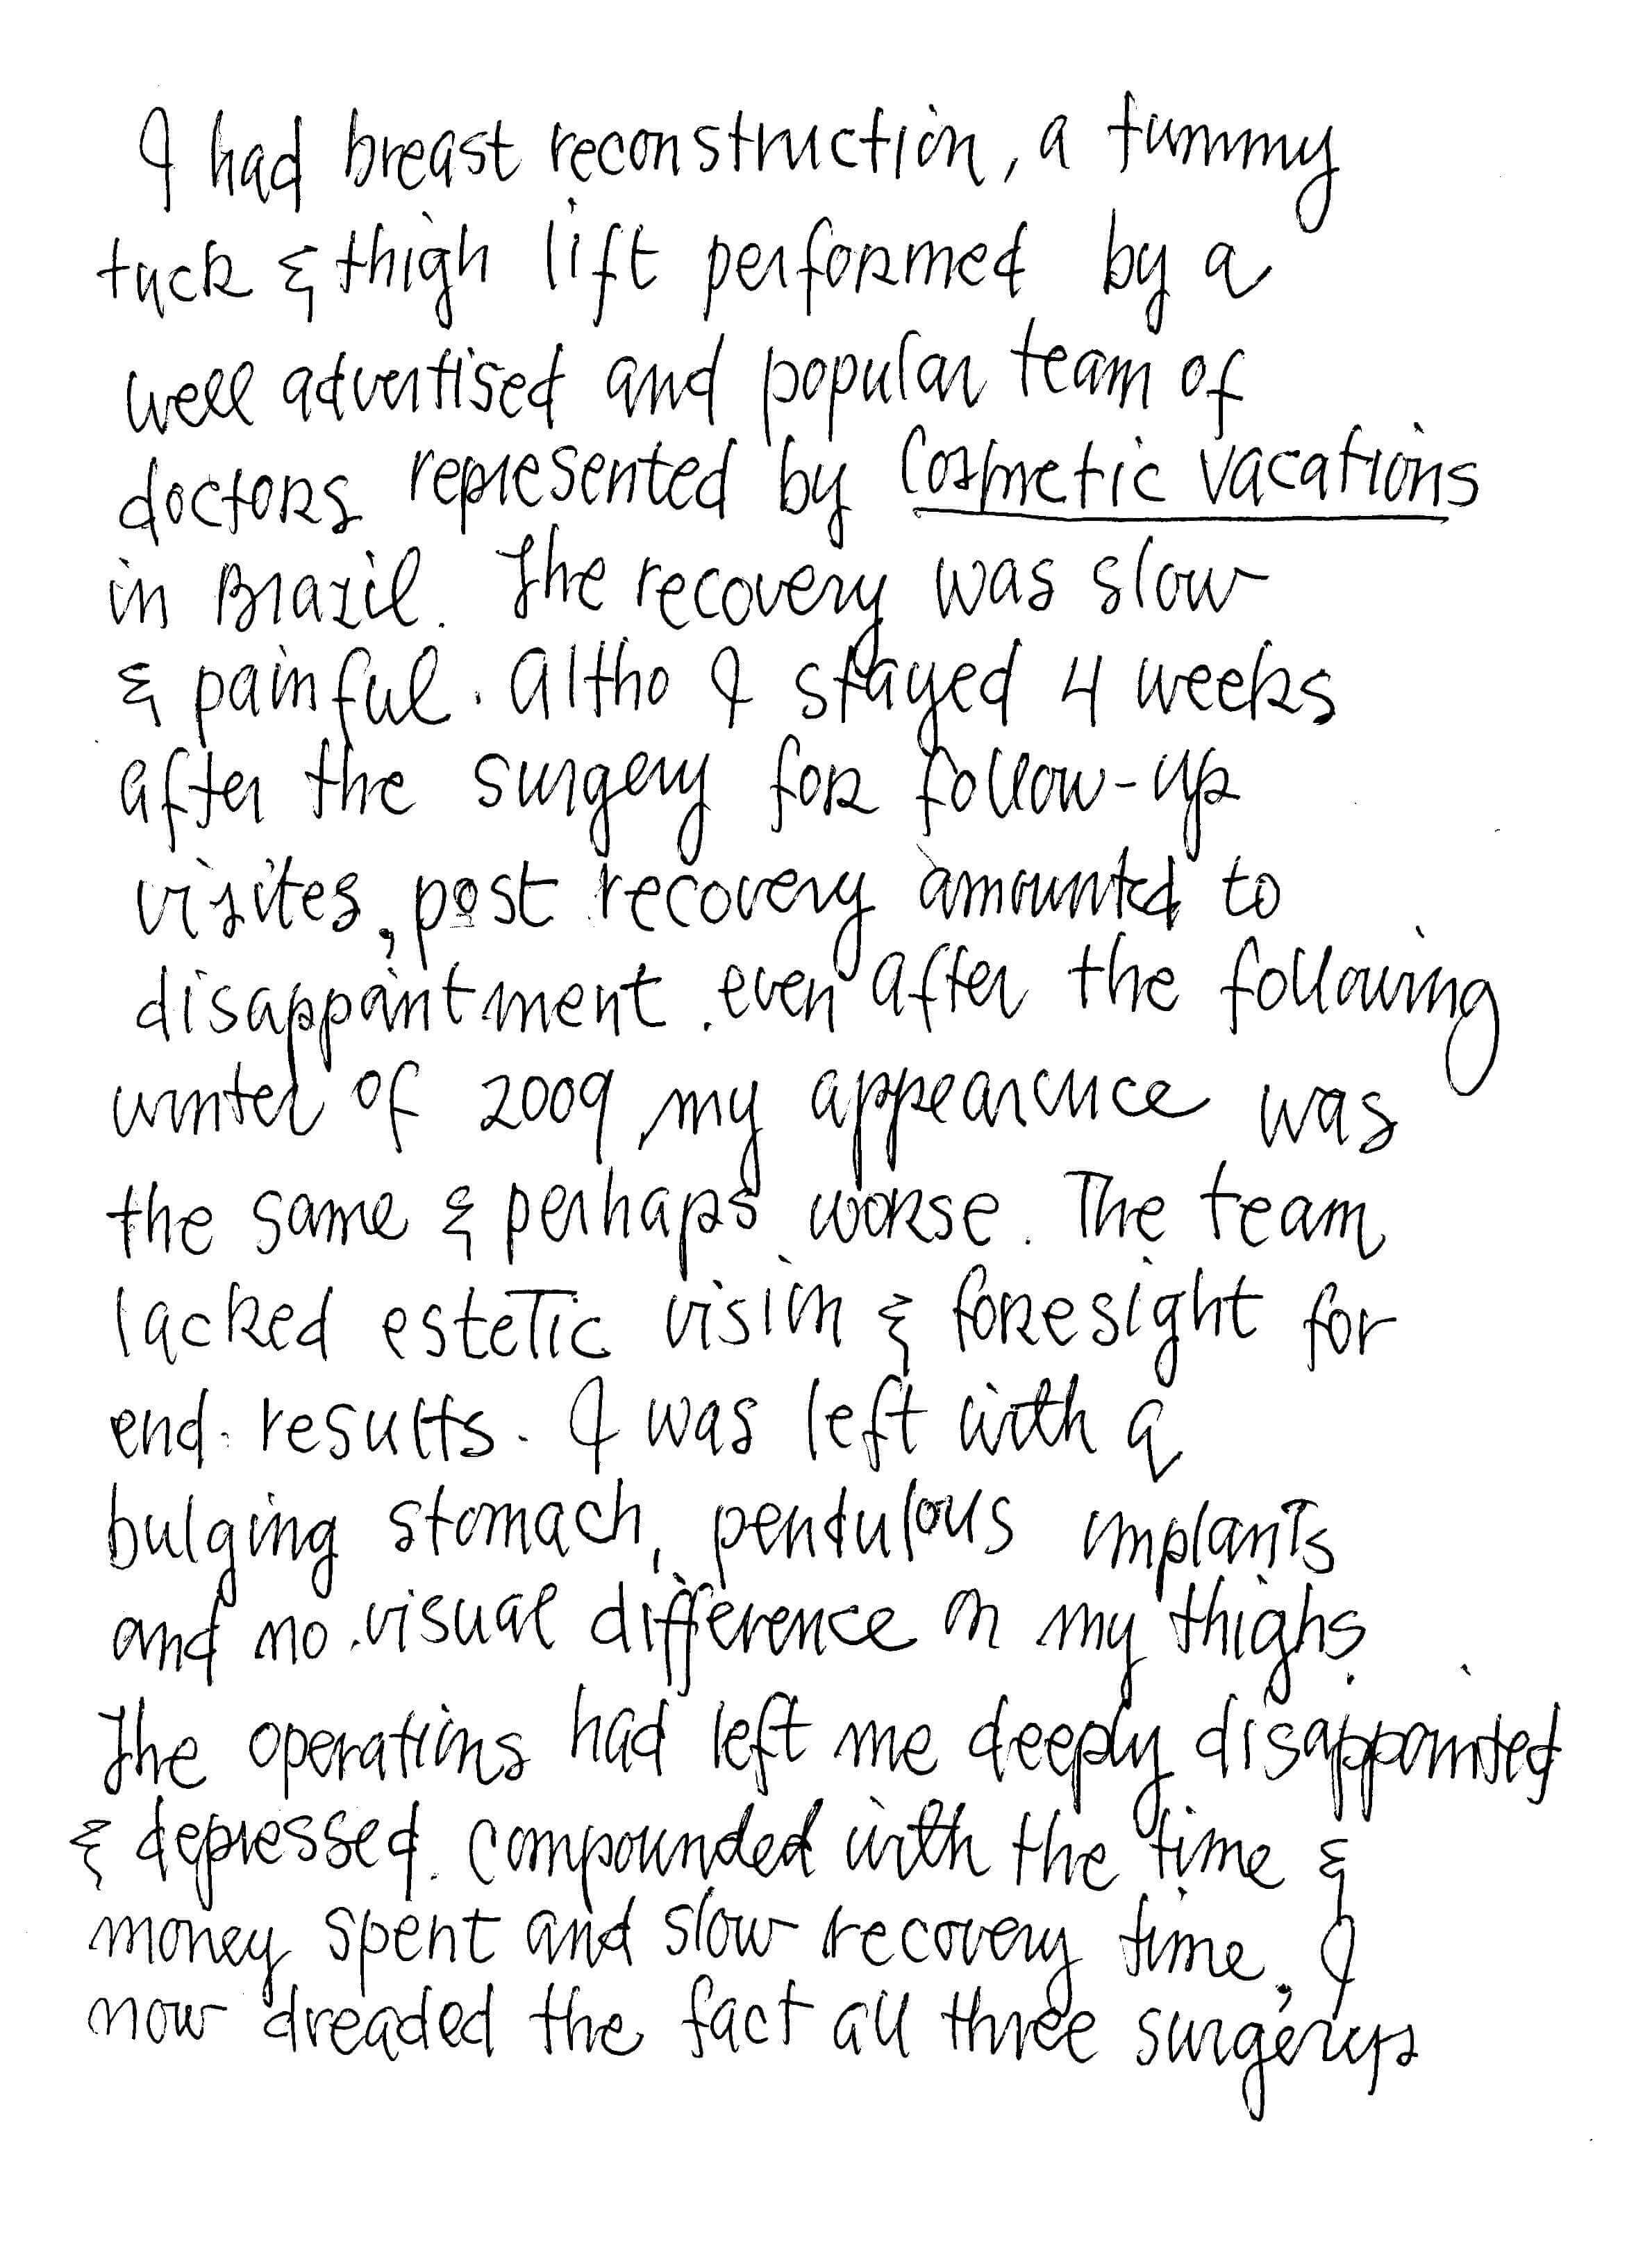 I had breast reconstruction, a tummy
tuck & thigh lift performed by a
well advertised and popular team of
doctors represented by Cosmetic Vacations
in Brazil. The recovery was slow
& painful. Altho I stayed 4 weeks
after the surgery for follow-up
visites, post recovery amounted to
disappointment. even after the following
winter of 2009 my appearance was
the same & perhaps worse. The team
lacked estetic vision & foresight for
end results. I was left with a
bulging stomach, pendulous implants
and no visual difference on my thighs.
The operations had left me deeply disappointed
& depressed. Compounded with the time &
money spent and slow recovery time, I
now dreaded the fact all three surgerys